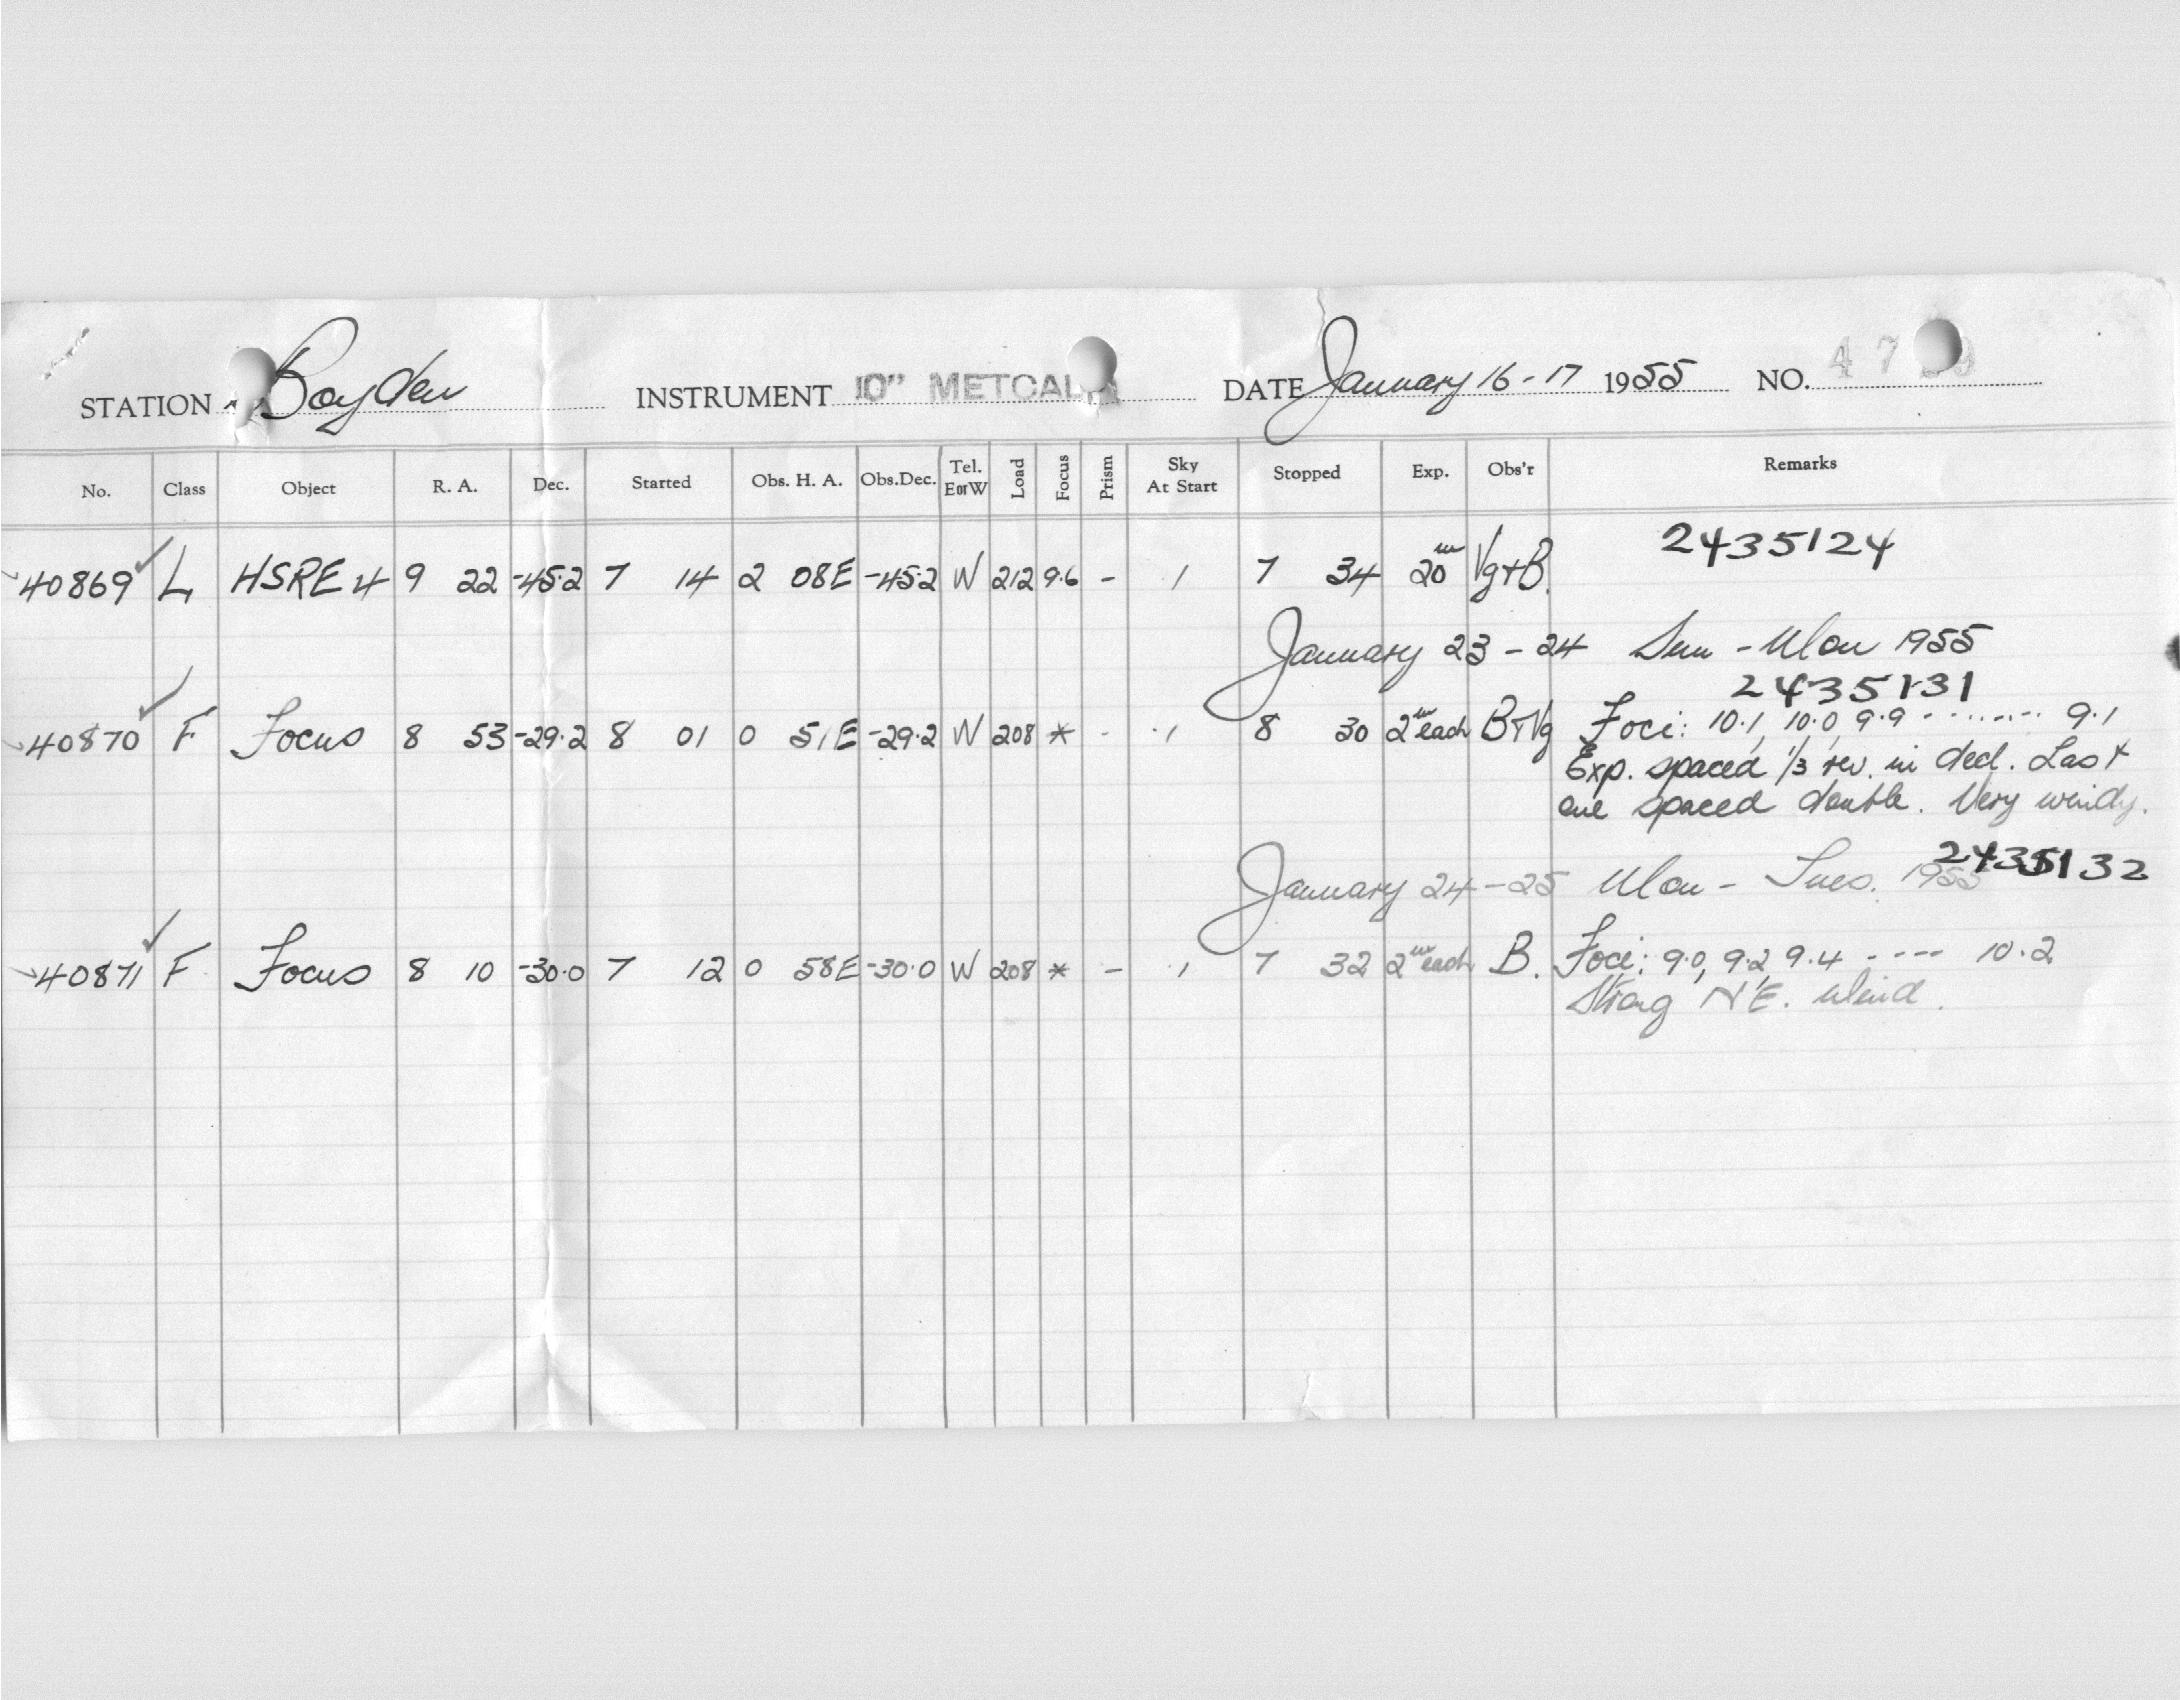 STATION Boyden INSTRUMENT 10" METCALF DATE January 16-17 1955 NO. 47
No. Class Object R. A. Dec. Started Obs. H. A. Obs.Dec. Tel. EorW Load Focus Prism Sky At Start Stopped Exp. Obs'r Remarks
2435124
40869 L HSRE 4 9 22 -45.2 7 14 2 08E -45.2 W 212 9.6 - 1 7 34 20m Vg+B.
January 23-24 Sun-Mon 1955
2435131
40870 F Focus 8 53 -29.2 8 01 0 51E -29.2 W 208 * - 1 8 30 2m each B+Vg Foci: 10.1, 10.0, 9.9 -------- 9.1
Exp. spaced 1/3 rev. in decl. Last
one spaced double. Very windy.
2435132
January 24-25 Mon-Tues. 1955
40871 F Focus 8 10 -30.0 7 12 0 58E -30.0 W 208 * - 1 7 32 2m each B. Foci: 9.0, 9.2, 9.4 ---- 10.2
Strong N'E. Wind.